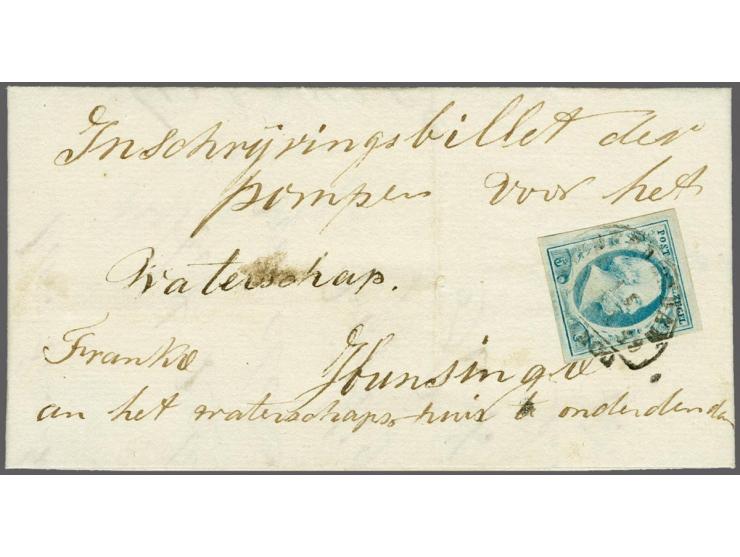 Inschrijvingsbillet der
pompen voor het
Waterschap.
Franko
Hunsingo
an het waterschaps huis te onderdendam
POST ZEGEL
5 C